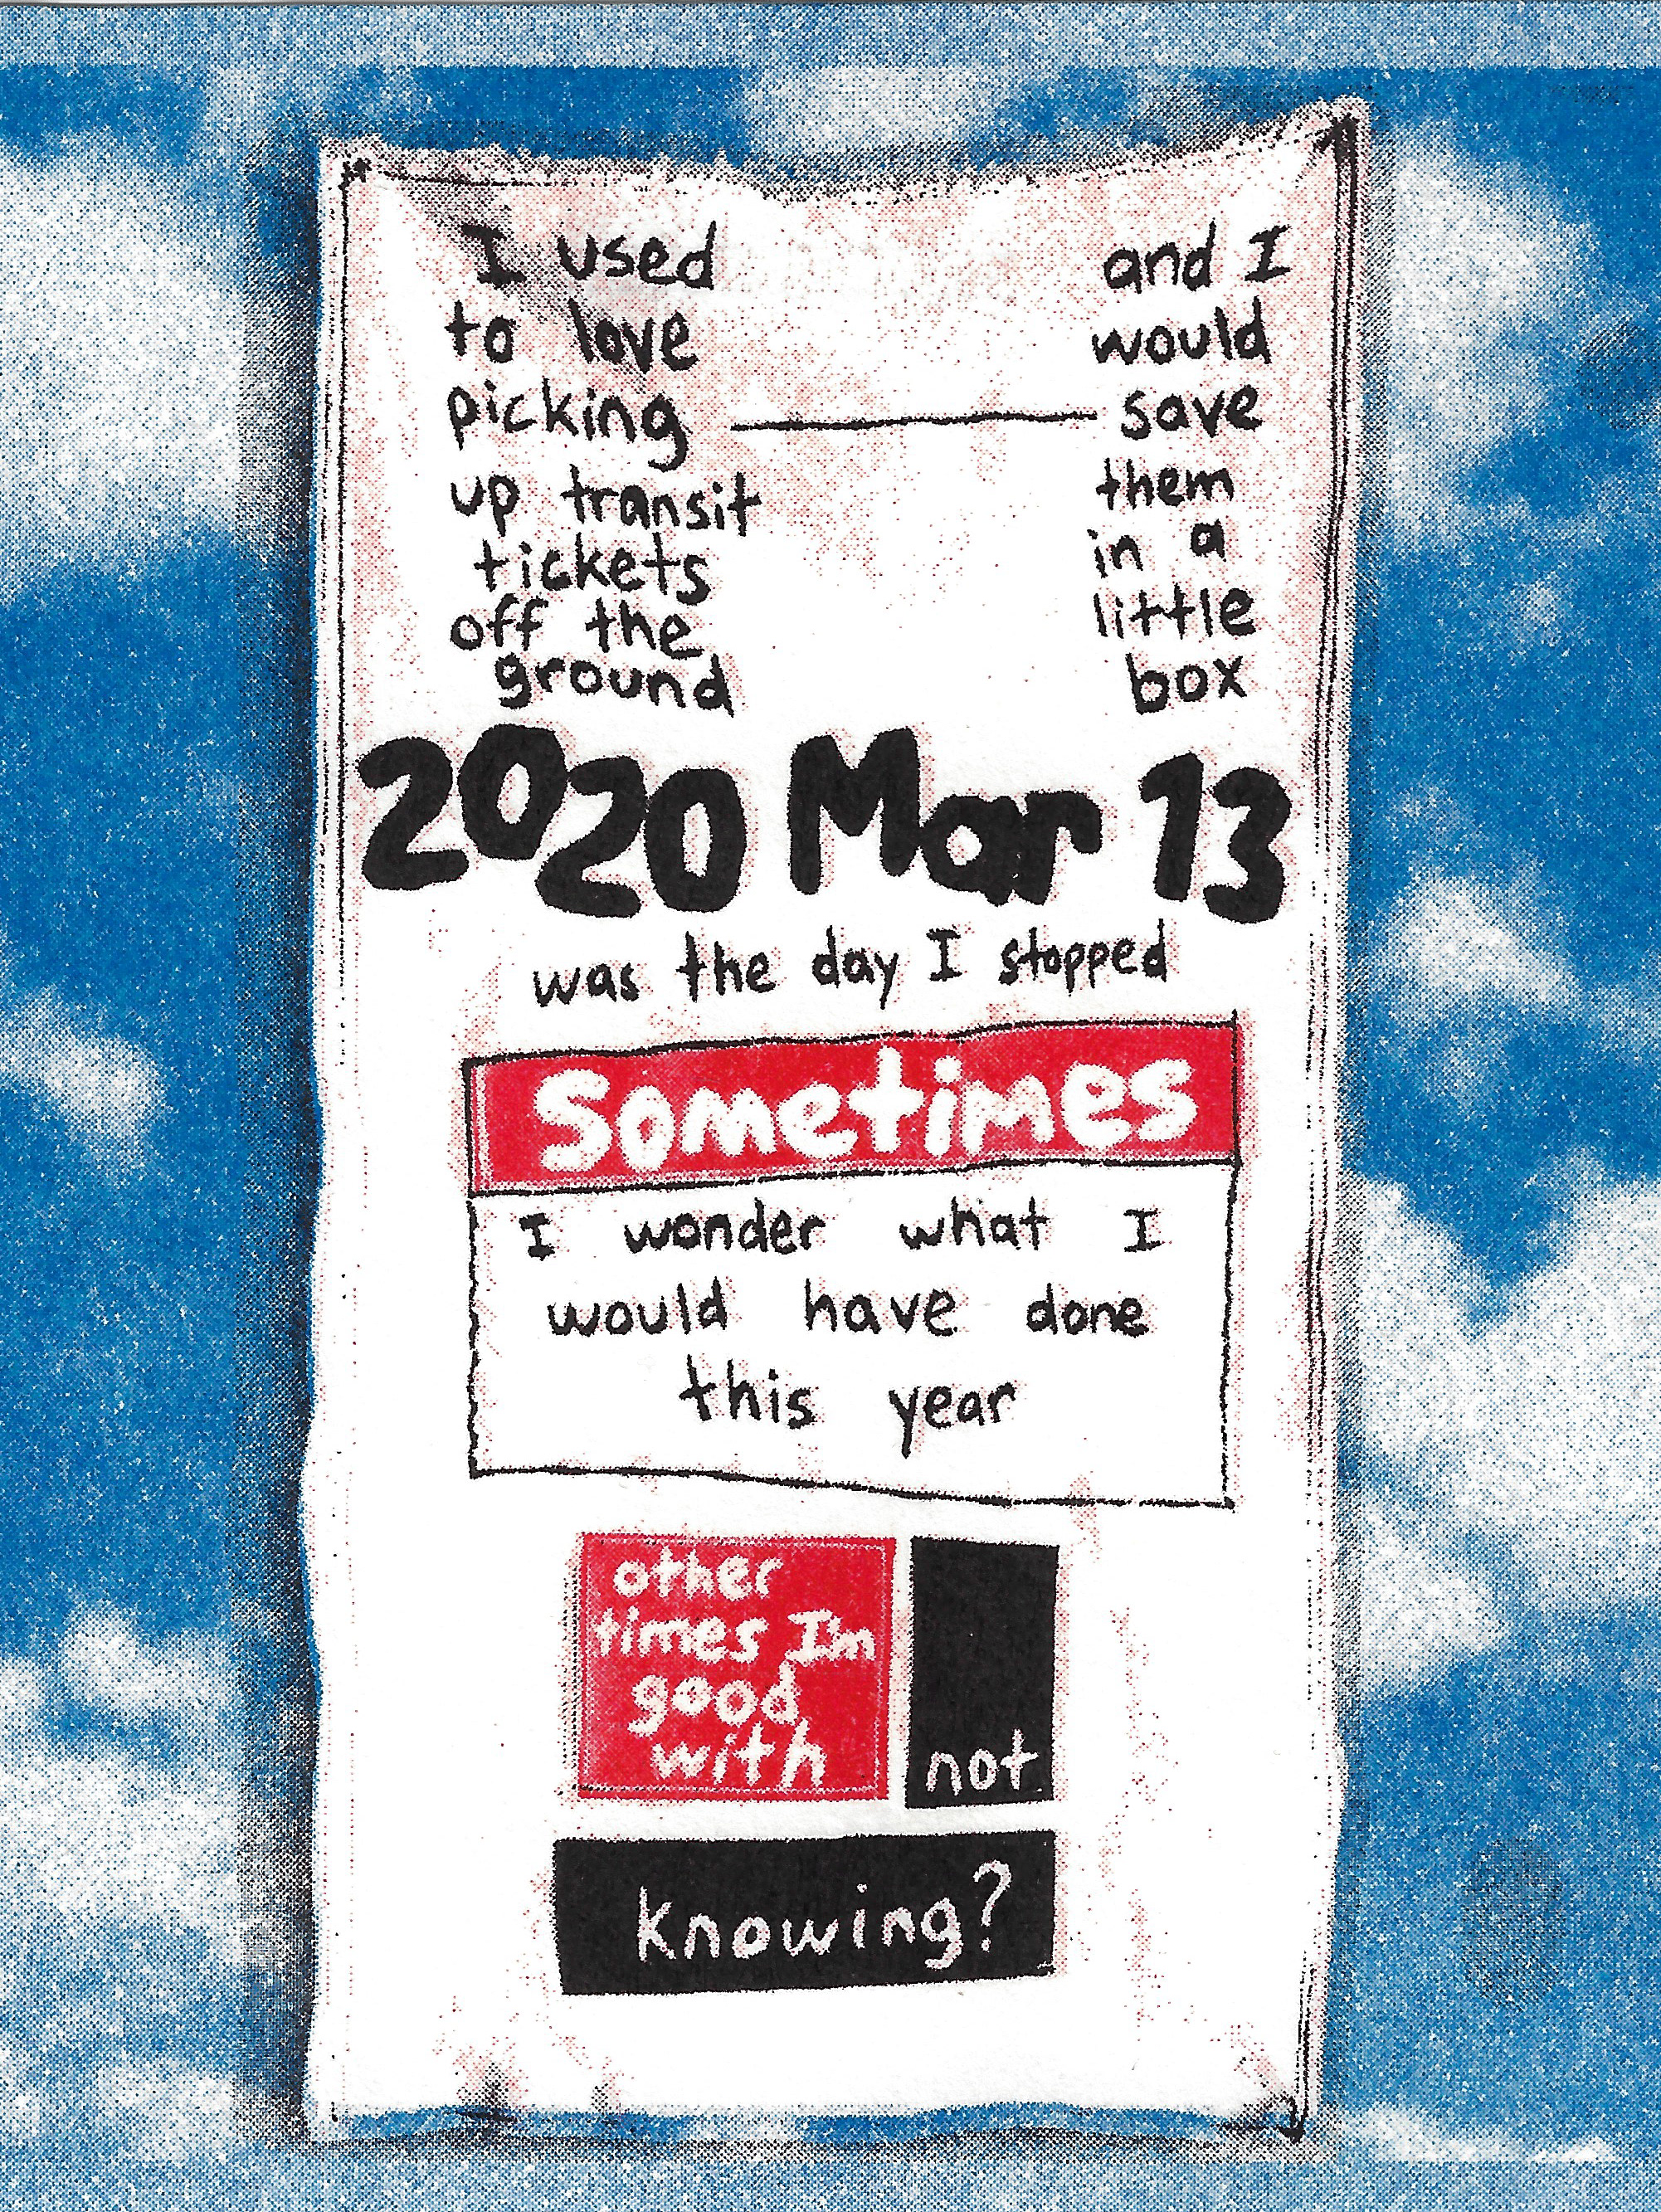 I used
to love
picking
up transit
tickets
off the
ground
and I
would
save
them
in a
little
box
2020 Mar 13
was the day I stopped
Sometimes
I wonder what I
would have done
this year
other
times I'm
good
with
not
knowing?